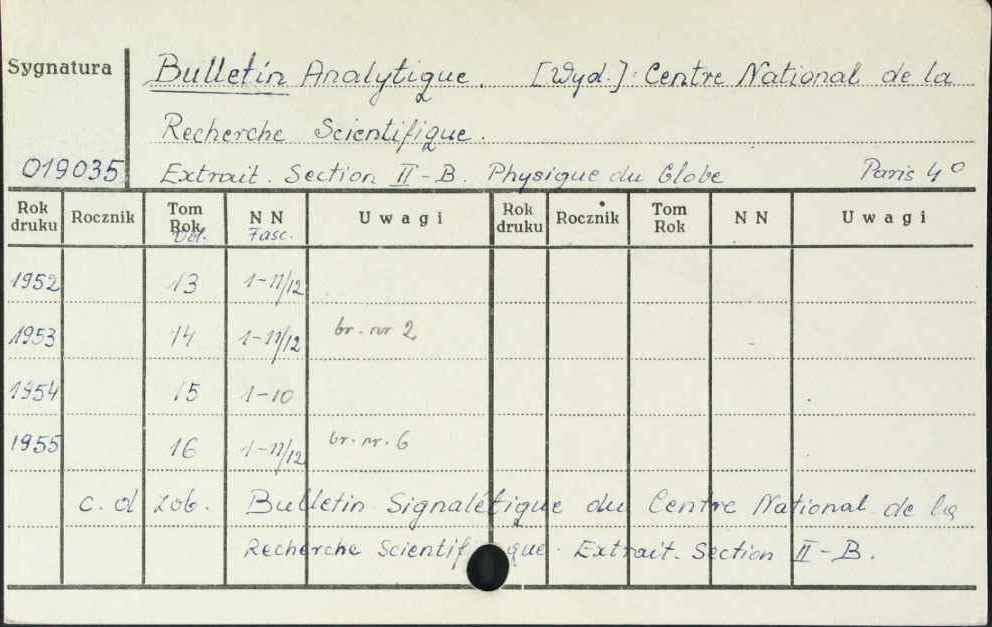 Sygnatura
Bulletin Analytique. [Wyd.]: Centre National de la
Recherche Scientifique.
019035 Extrait. Section II-B. Physique du Globe Paris 4°
Rok druku Rocznik Tom Rok Vol. N N Fasc. U w a g i Rok druku Rocznik Tom Rok N N U w a g i
1952 13 1-11/12
1953 14 1-11/12 br. nr 2
1954 15 1-10
1955 16 1-11/12 br. nr. 6
c. d zob. Bulletin Signalétique du Centre National de la
Recherche Scientifique. Extrait. Section II-B.